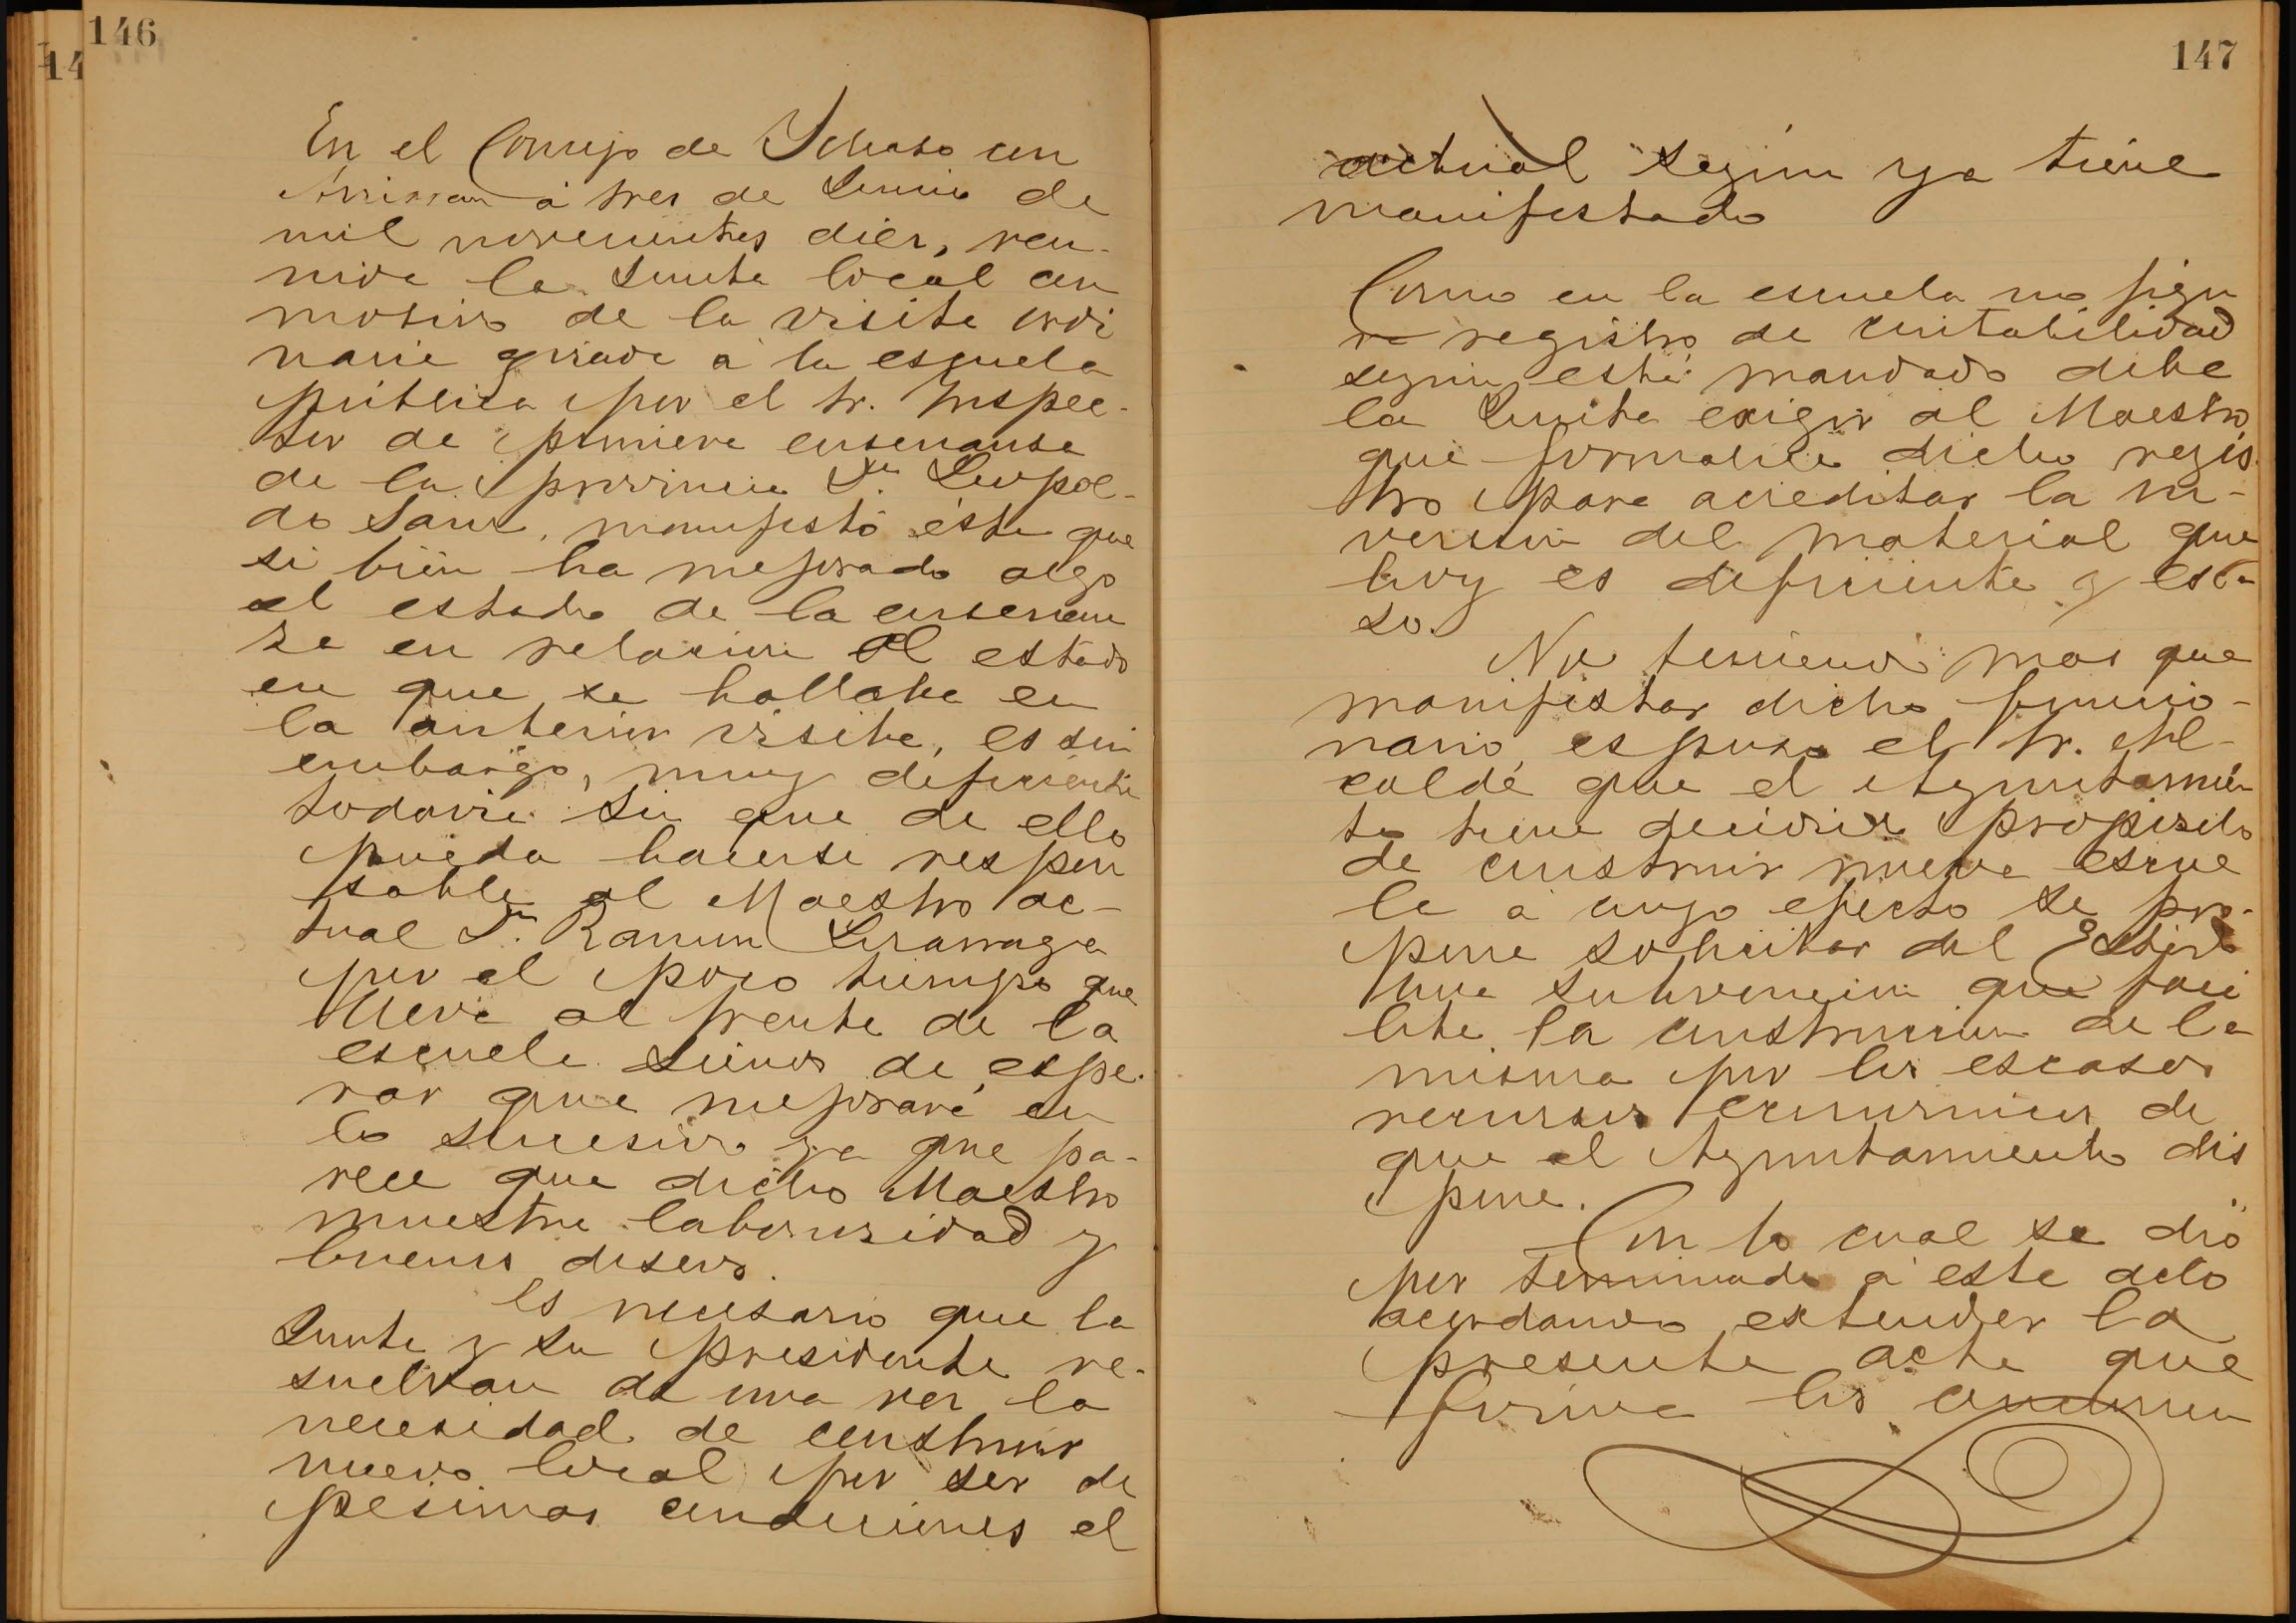 146
14
En el Concejo de Ichaso con
Arrizcun á tres de Junio de
mil novecientos diez, reu-
nida la Junta local con
motivo de la visita ordi
naria girada á la escuela
pública por el Sr. Inspec-
tor de primera enseñanza
de la provincia Dn. Leopol-
do Sanz, manifestó éste que
si bien ha mejorado algo
el estado de la enseñan
za en relacion al estado
en que se hallaba en
la anterior visita, es sin
embargo, muy deficiente
todavia sin que de ello
pueda hacerse respon
sable al Maestro ac-
tual Dn. Ramon Lizarraga
por el poco tiempo que
lleva al frente de la
escuela siendo de espe-
rar que mejorará en
lo sucesivo ya que pa-
rece que dicho Maestro
muestra laboriosidad y
buenos deseos.
Es necesario que la
Junta y su presidente re-
suelvan de una vez la
necesidad de construir
nuevo local por ser de
pesimas condiciones el
147
actual segun ya tiene
manifestado
Como en la escuela no figu
ra registro de contabilidad
segun está mandado debe
la Junta exigir al Maestro
que formalice dicho regis-
tro para acreditar la in-
version del material que
hoy es deficiente y esca
so.
No teniendo mas que
manifestar dicho funcio-
nario, espuso el Sr. Al-
calde que el Ayuntamien
to tiene decidido proposito
de construir nueva escue
la á cuyo efecto se pro-
pone solicitar del Estado
una subvencion que faci
lite la construccion de la
misma por los escasos
recursos economicos de
que el Ayuntamiento dis
pone.
Con lo cual se dió
por terminado á este acto
acordando extender la
presente acta que
firma los concurren